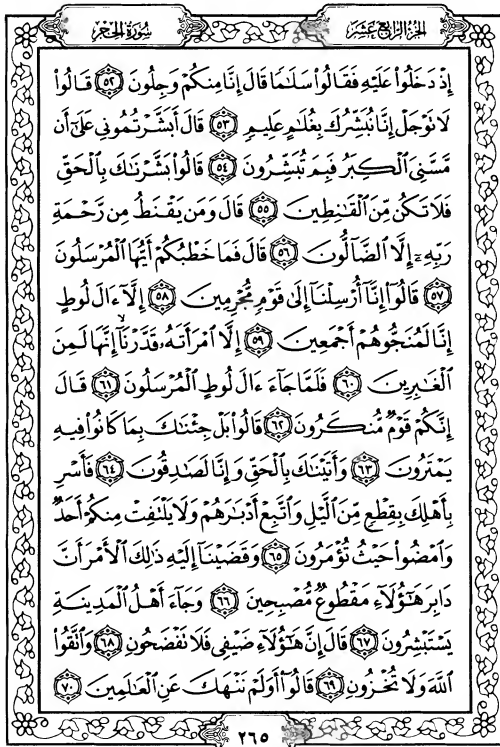 الجزء الرابع عشر
سورة الحجر
إِذْ دَخَلُوا۟ عَلَيْهِ فَقَالُوا۟ سَلَـٰمًا قَالَ إِنَّا مِنكُمْ وَجِلُونَ ٥٢ قَالُوا۟
لَا تَوْجَلْ إِنَّا نُبَشِّرُكَ بِغُلَـٰمٍ عَلِيمٍ ٥٣ قَالَ أَبَشَّرْتُمُونِى عَلَىٰٓ أَن
مَّسَّنِىَ ٱلْكِبَرُ فَبِمَ تُبَشِّرُونَ ٥٤ قَالُوا۟ بَشَّرْنَـٰكَ بِٱلْحَقِّ
فَلَا تَكُن مِّنَ ٱلْقَـٰنِطِينَ ٥٥ قَالَ وَمَن يَقْنَطُ مِن رَّحْمَةِ
رَبِّهِۦٓ إِلَّا ٱلضَّآلُّونَ ٥٦ قَالَ فَمَا خَطْبُكُمْ أَيُّهَا ٱلْمُرْسَلُونَ
٥٧ قَالُوٓا۟ إِنَّآ أُرْسِلْنَآ إِلَىٰ قَوْمٍ مُّجْرِمِينَ ٥٨ إِلَّآ ءَالَ لُوطٍ
إِنَّا لَمُنَجُّوهُمْ أَجْمَعِينَ ٥٩ إِلَّا ٱمْرَأَتَهُۥ قَدَّرْنَآ إِنَّهَا لَمِنَ
ٱلْغَـٰبِرِينَ ٦٠ فَلَمَّا جَآءَ ءَالَ لُوطٍ ٱلْمُرْسَلُونَ ٦١ قَالَ
إِنَّكُمْ قَوْمٌ مُّنكَرُونَ ٦٢ قَالُوا۟ بَلْ جِئْنَـٰكَ بِمَا كَانُوا۟ فِيهِ
يَمْتَرُونَ ٦٣ وَأَتَيْنَـٰكَ بِٱلْحَقِّ وَإِنَّا لَصَـٰدِقُونَ ٦٤ فَأَسْرِ
بِأَهْلِكَ بِقِطْعٍ مِّنَ ٱلَّيْلِ وَٱتَّبِعْ أَدْبَـٰرَهُمْ وَلَا يَلْتَفِتْ مِنكُمْ أَحَدٌ
وَٱمْضُوا۟ حَيْثُ تُؤْمَرُونَ ٦٥ وَقَضَيْنَآ إِلَيْهِ ذَٰلِكَ ٱلْأَمْرَ أَنَّ
دَابِرَ هَـٰٓؤُلَآءِ مَقْطُوعٌ مُّصْبِحِينَ ٦٦ وَجَآءَ أَهْلُ ٱلْمَدِينَةِ
يَسْتَبْشِرُونَ ٦٧ قَالَ إِنَّ هَـٰٓؤُلَآءِ ضَيْفِى فَلَا تَفْضَحُونِ ٦٨ وَٱتَّقُوا۟
ٱللَّهَ وَلَا تُخْزُونِ ٦٩ قَالُوٓا۟ أَوَلَمْ نَنْهَكَ عَنِ ٱلْعَـٰلَمِينَ ٧٠
٢٦٥